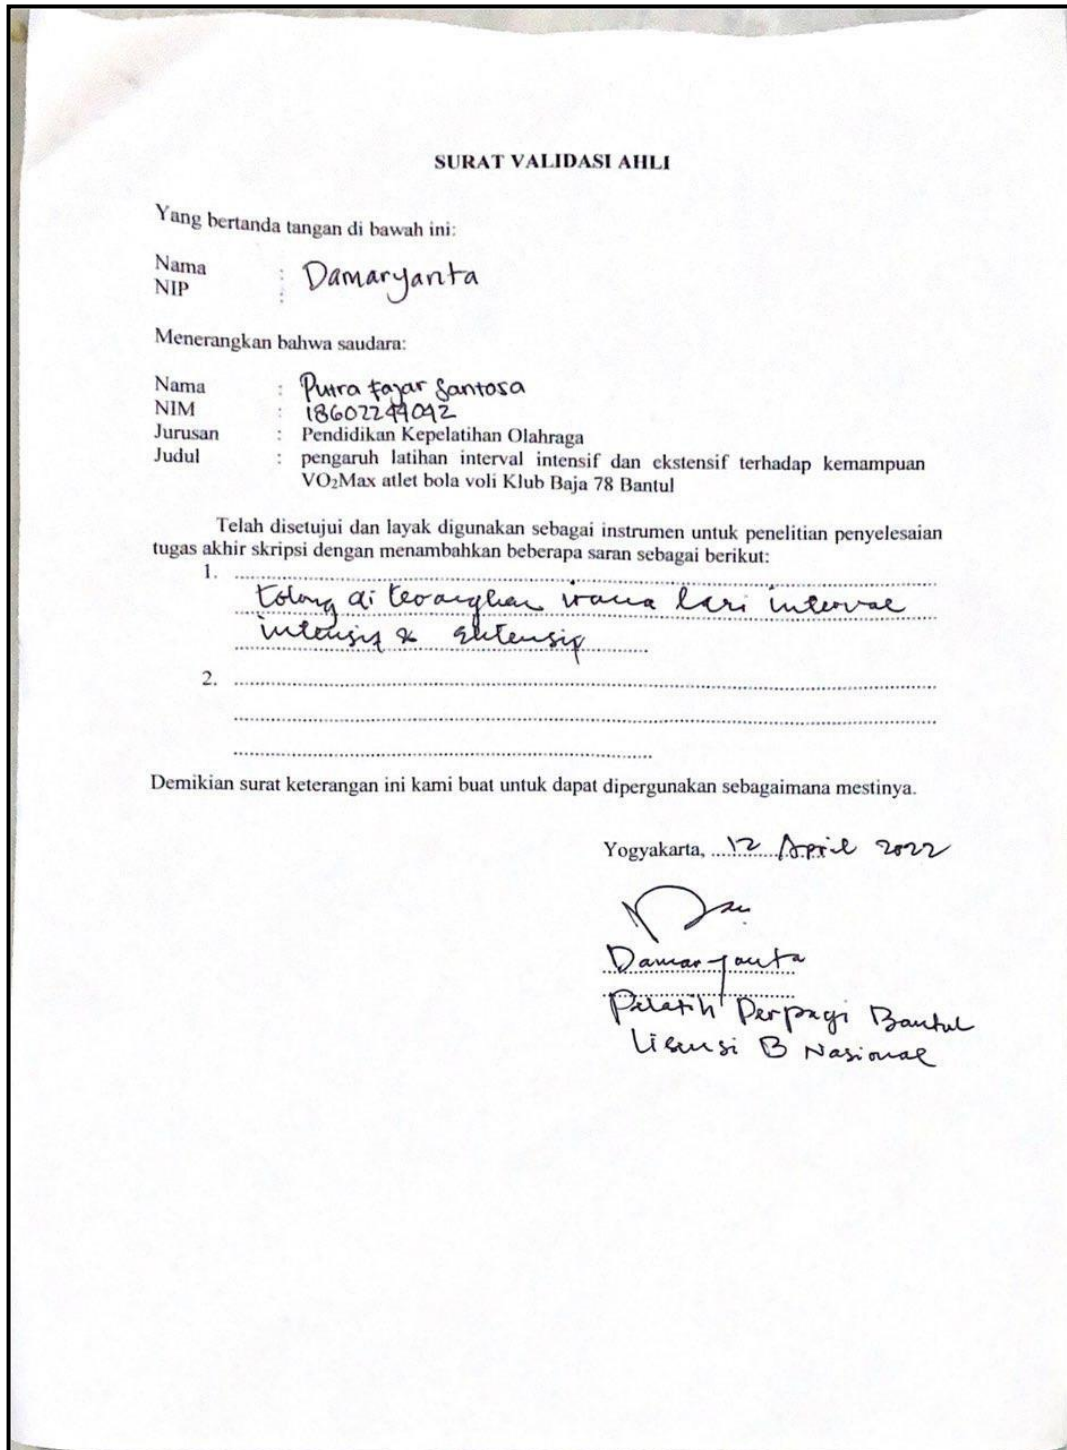 SURAT VALIDASI AHLI
Yang bertanda tangan di bawah ini:
Nama : Damaryanta
NIP :
Menerangkan bahwa saudara:
Nama : Putra Fajar Santosa
NIM : 18602244042
Jurusan : Pendidikan Kepelatihan Olahraga
Judul : pengaruh latihan interval intensif dan ekstensif terhadap kemampuan
VO₂Max atlet bola voli Klub Baja 78 Bantul
Telah disetujui dan layak digunakan sebagai instrumen untuk penelitian penyelesaian
tugas akhir skripsi dengan menambahkan beberapa saran sebagai berikut:
1.
tolong di terangkan irama lari interval
intensif & ekstensif
2.
Demikian surat keterangan ini kami buat untuk dapat dipergunakan sebagaimana mestinya.
Yogyakarta, 12 April 2022
Damaryanta
Pelatih Perpagi Bantul
Lisensi B Nasional